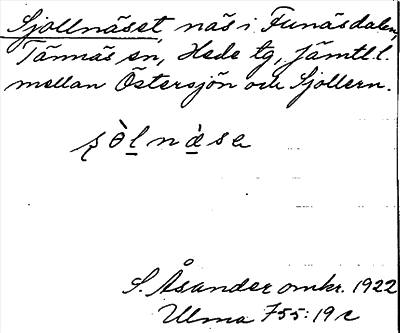 Sjollnäset, näs i Funäsdalen,
Tännäs sn, Hede tg, Jämtl. l.
mellan Östersjön och Sjollern.
ʂòl̲nà̲se
S. Åsander omkr. 1922
Ulma 755:19 c